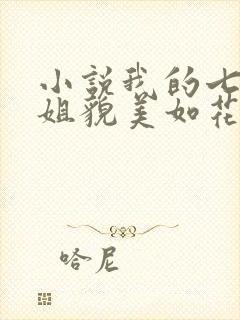 小説我的七
姐貌美如花
哈尼